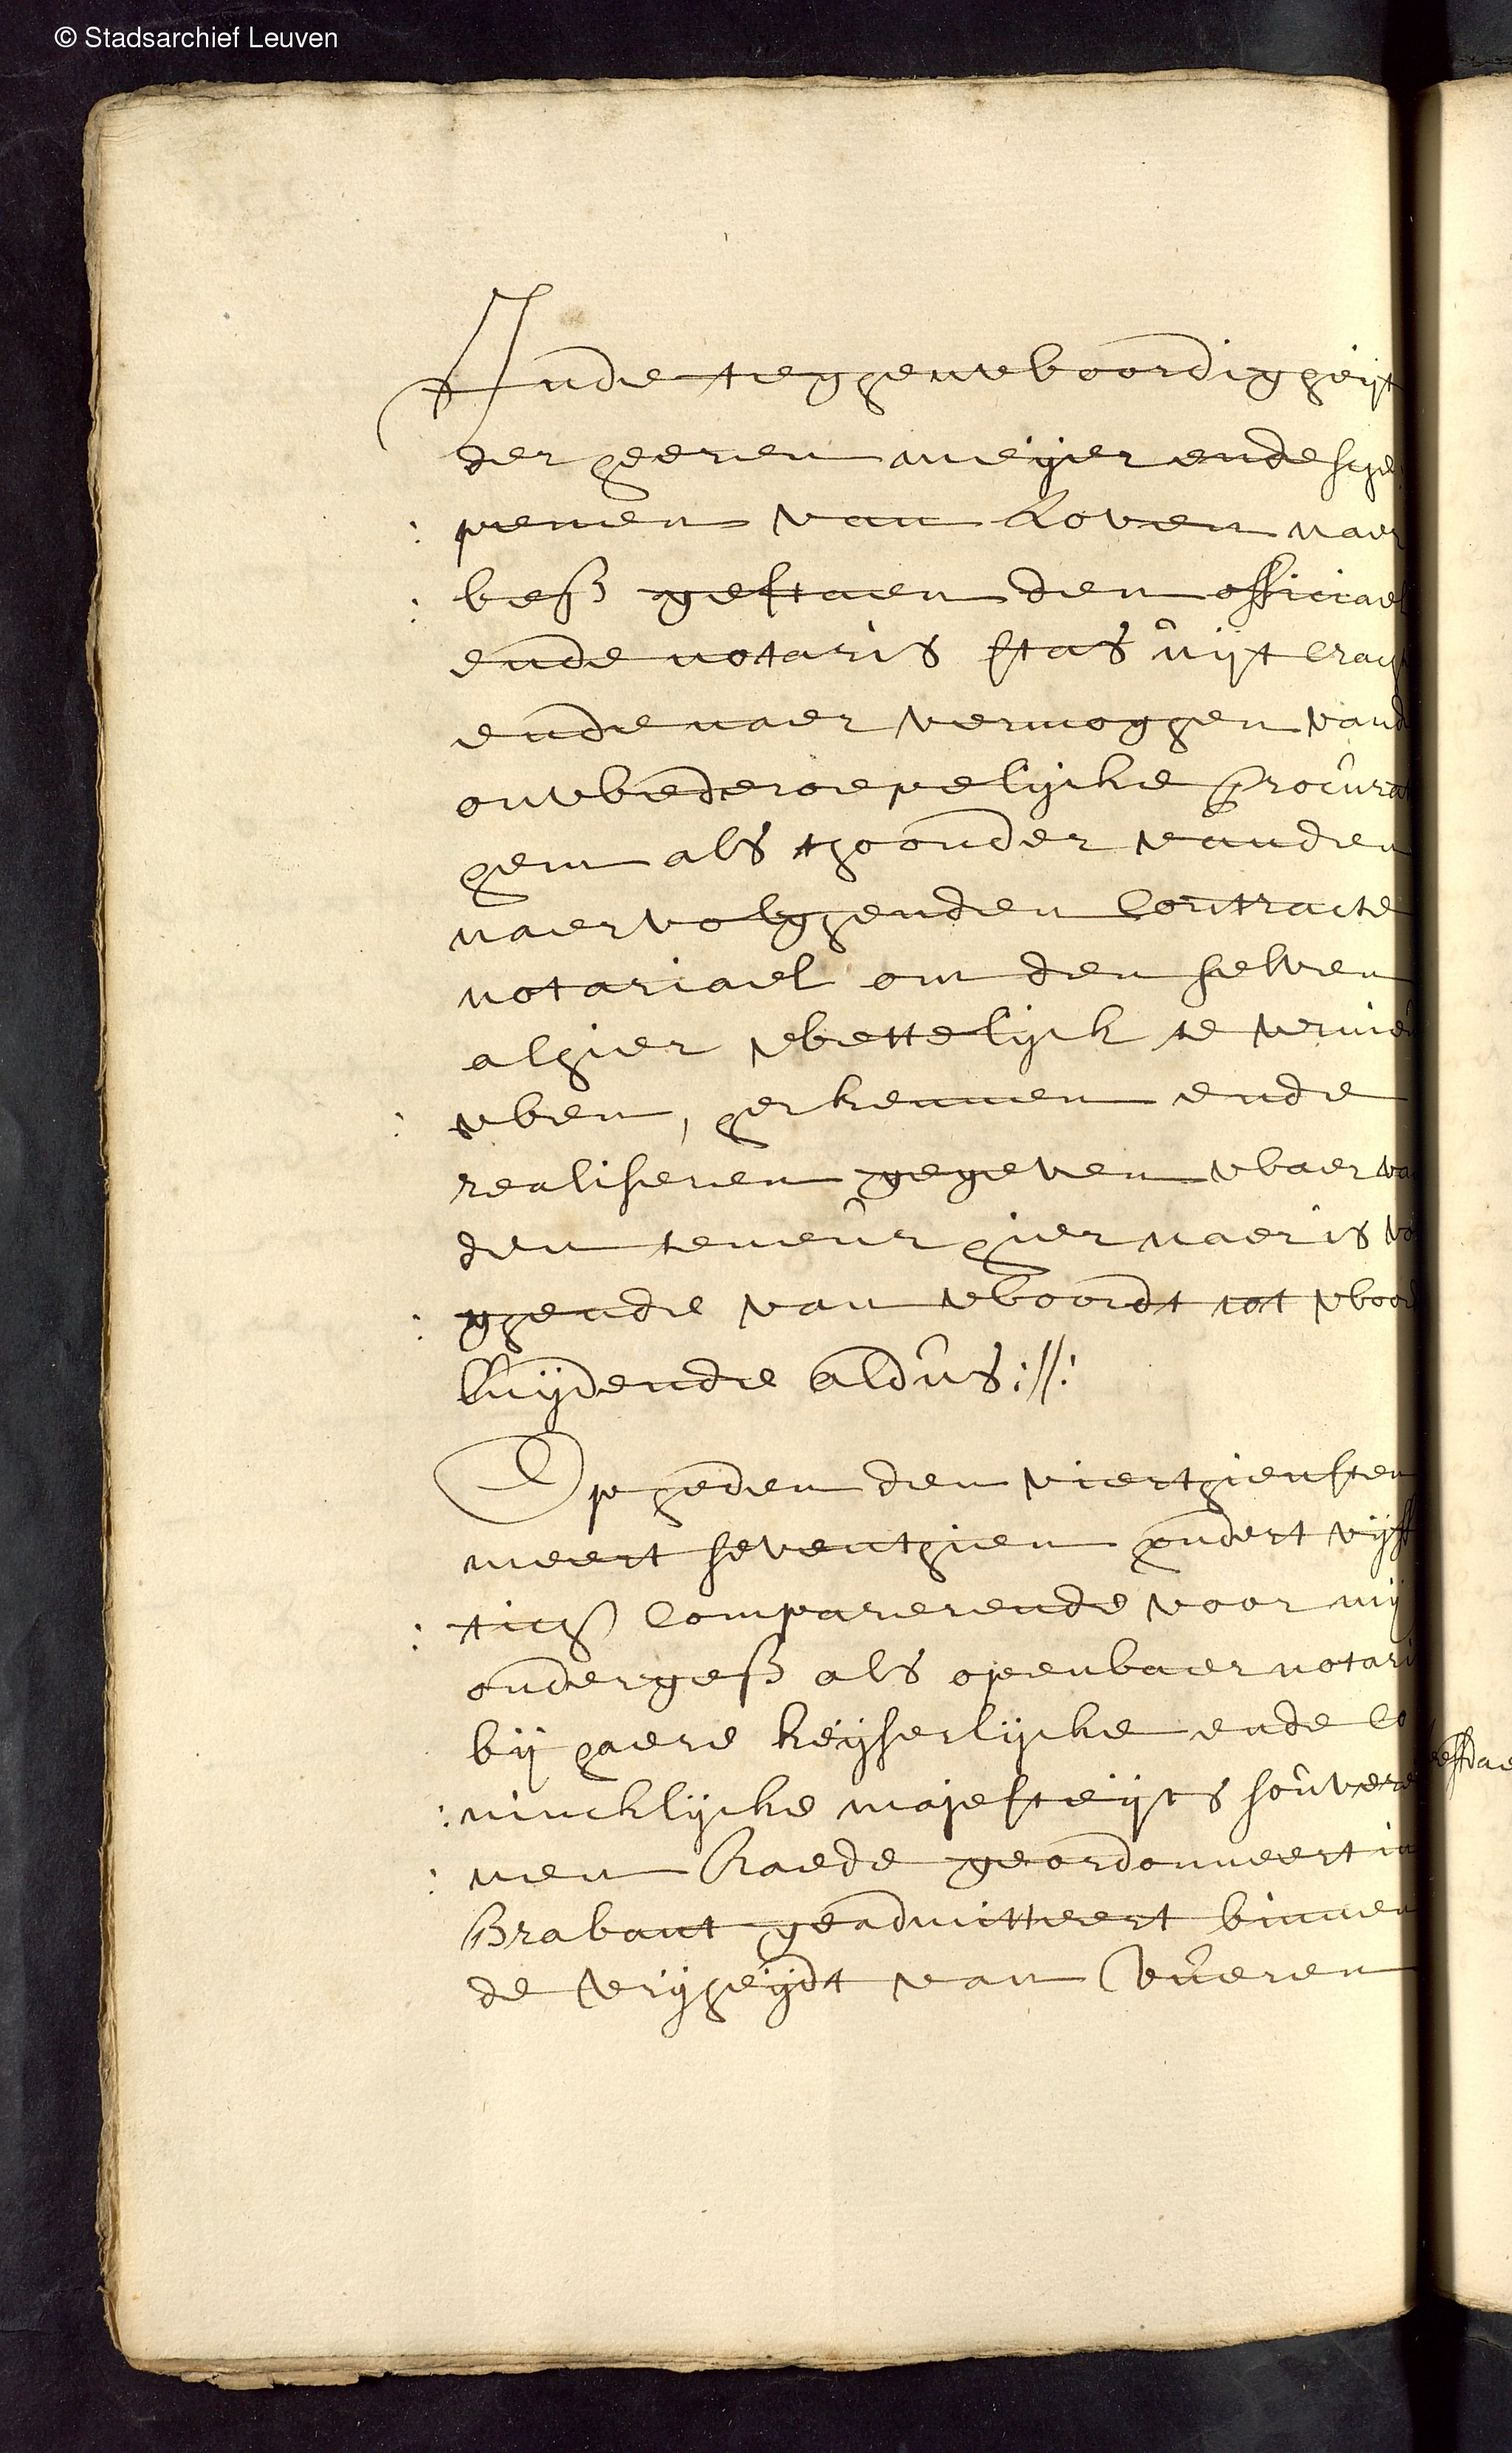 © Stadsarchief Leuven
Inde teghenwoordigheijt
der heeren meijer ende sche
: penen van Loven naer
: beß gestaen den officiael
ende notaris Stas uijt crach
ende naer vermoghen vand
onwederroepelijcke procurat
hem als thoonder vanden
naervolghenden contracte
notariael om den selven
alhier wettelijck te vernieu
: wen, herkennen ende
realiseren gegeven waer va
den teneur hier naer is vol
: ghende van woordt tot woord
luijdende aldus ://:
Op heden den vierthiensten
meert seventhien hondert vijff
: tich comparerende voor mij
ondergeß als openbaer notari
bij haere keijserlijcke ende co
: nincklijcke majesteijts souvere
: nen Raede geordonneert in
Brabant geadmitteert binnen
de vrijheijdt van Vueren
effdae